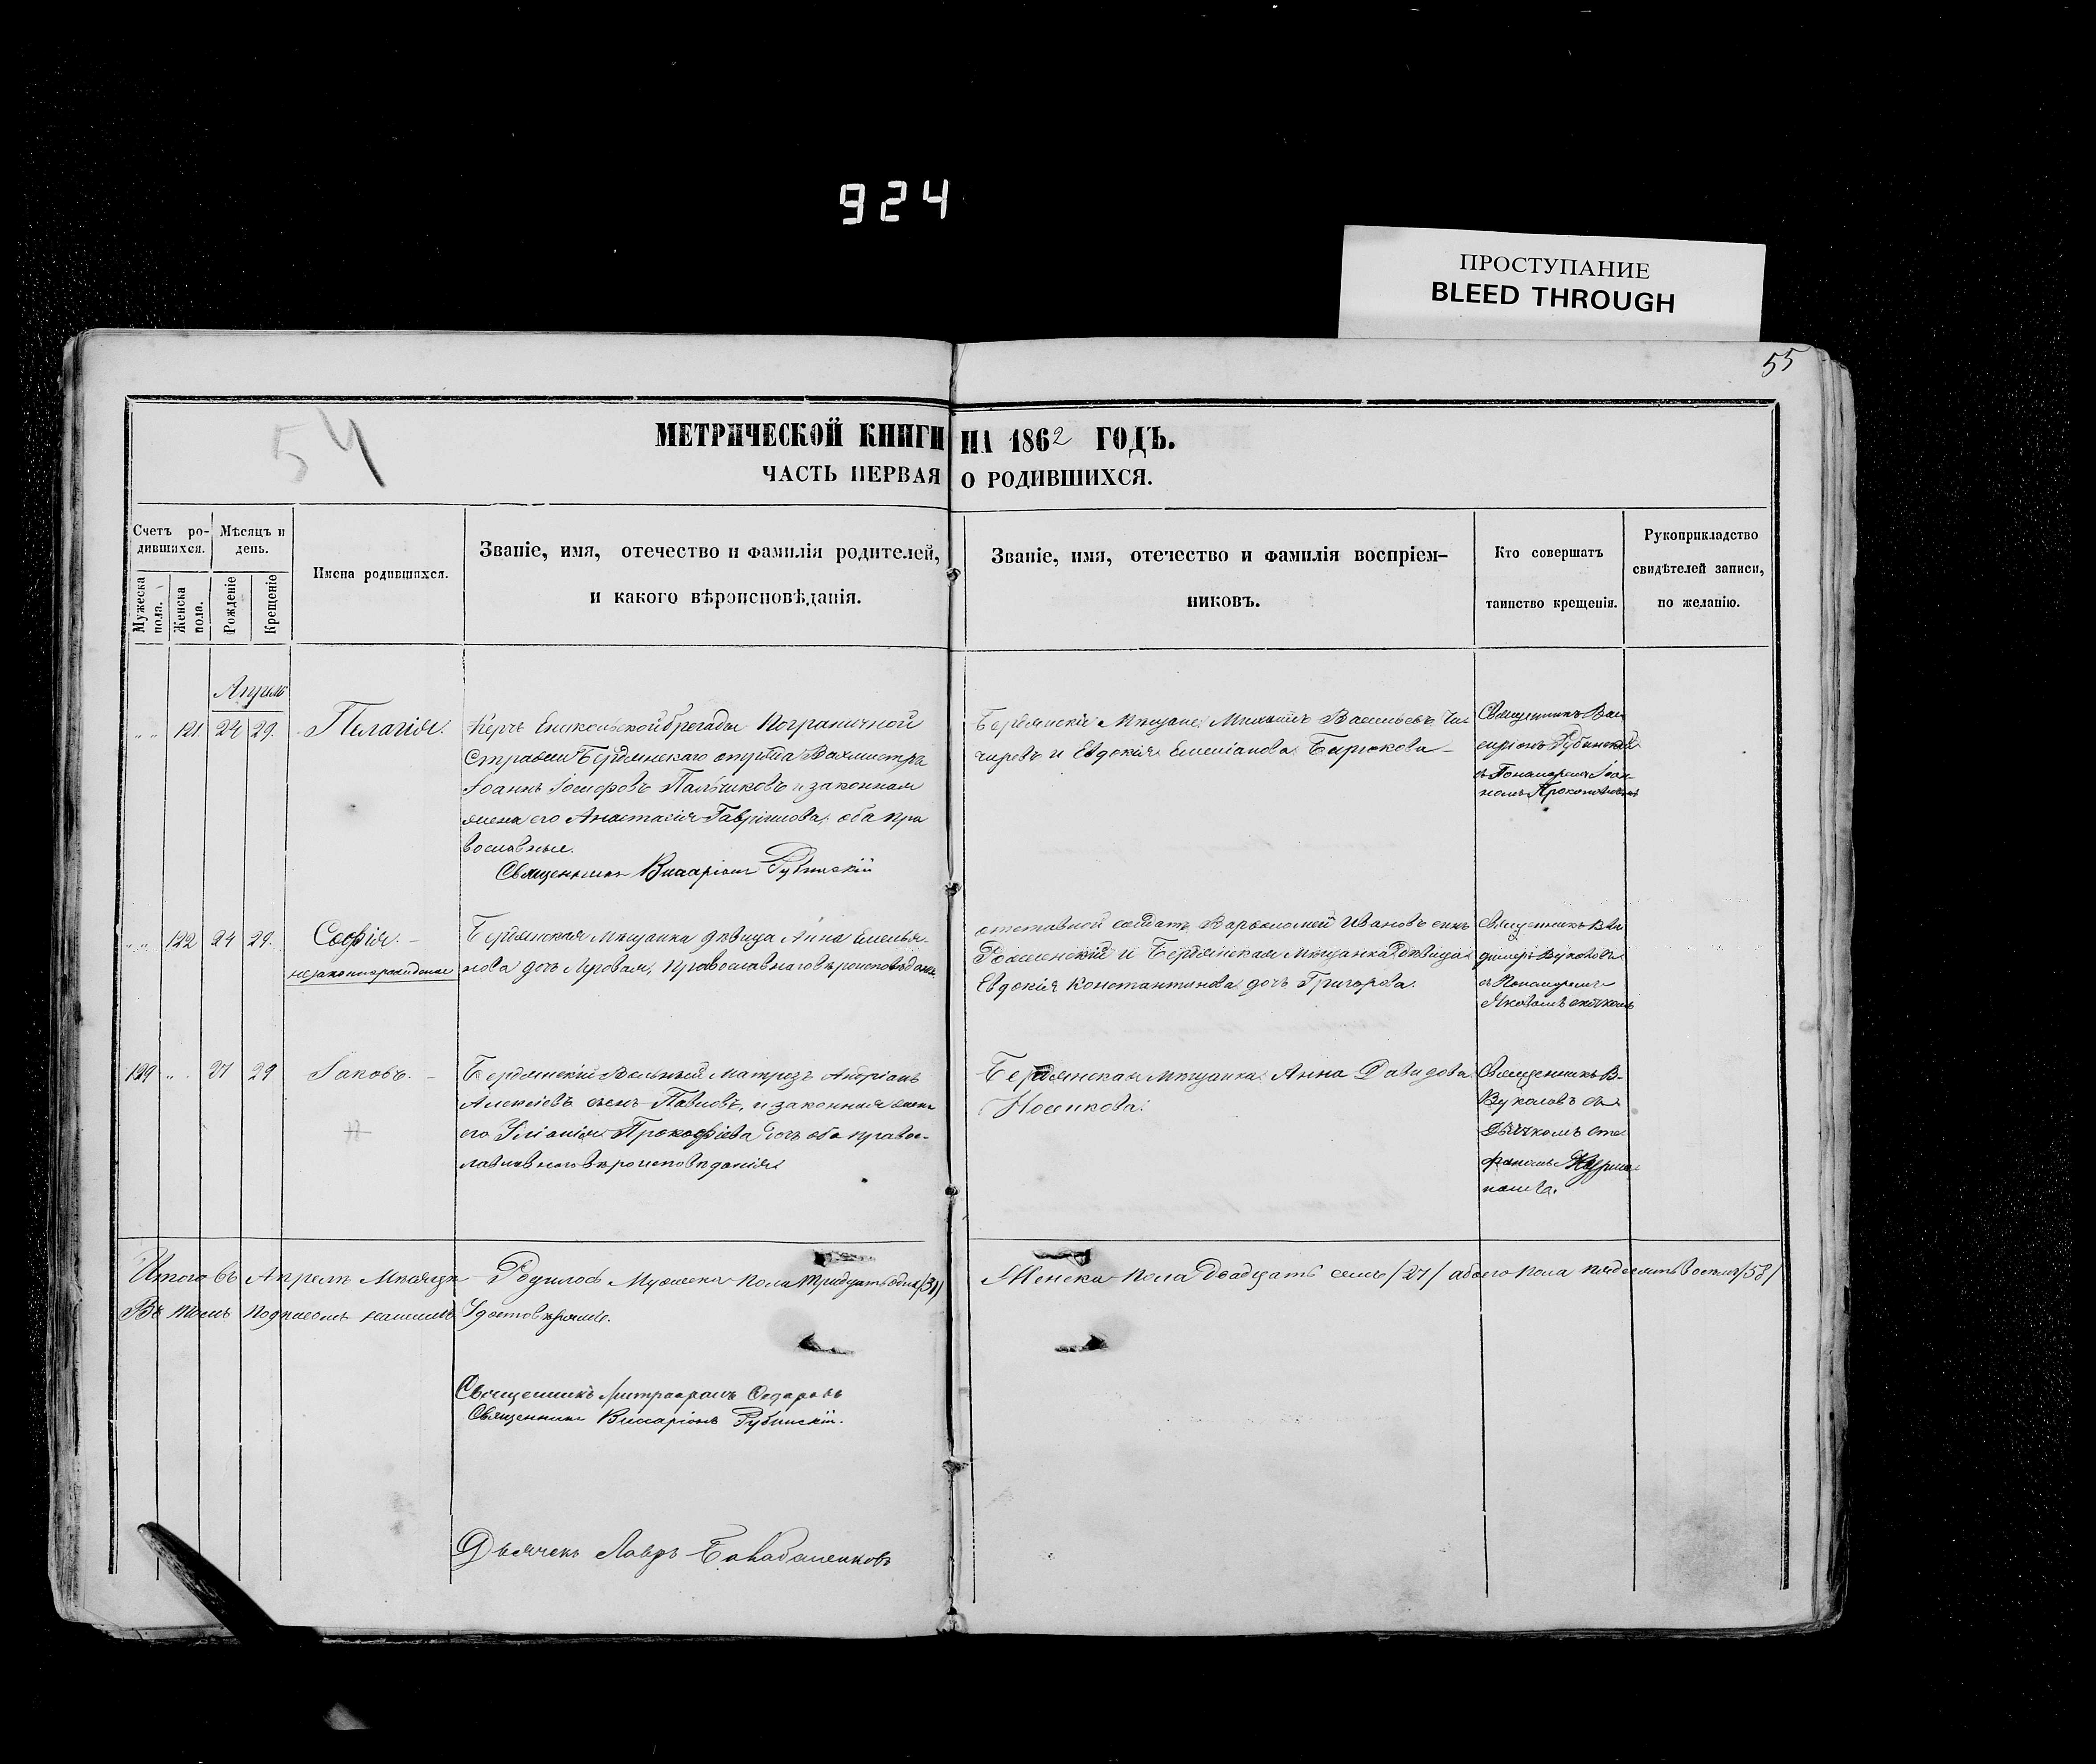 924
ПРОСТУПАНИЕ
BLEED THROUGH
55
54
МЕТРИЧЕСКОЙ КНИГИ НА 1862 ГОДЪ.
ЧАСТЬ ПЕРВАЯ О РОДИВШИХСЯ.
Счетъ ро-
дившихся.
Мужеска пола.
Женска пола.
Мѣсяцъ и
день.
Рожденіе
Крещеніе
Имена родившихся.
Званіе, имя, отечество и фамилія родителей,
и какого вѣроисповѣданія.
Званіе, имя, отечество и фамилія воспріем-
никовъ.
Кто совершатъ
таинство крещенія.
Рукоприкладство
свидѣтелей записи,
по желанію.
Апрель
" " 121. 24 29. Пелагія.
Керчь Еникольской бригады Пограничной
Стражи Бердянскаго отряда Вахмистръ
Іоаннъ Пальчиковъ и законная
жена его Анастасія Гавріилова, оба пра
вославные.
Священникъ Виссаріонъ Рубинскій
Бердянскіе Мѣщане Михаилъ Васильевъ
и Евдокія Емеліанова Бирюкова
Священникъ Вис
саріонъ Рубинскій
съ Пономаремъ Іоан-
номъ
" " 122 24 29. Софія.
незаконнорожденная
Бердянская Мѣщанка дѣвица Анна Емелья-
нова дочь Луговая, Православнаго вѣроисповѣданія
отставной солдатъ Варфоломей Ивановъ сынъ
и Бердянская Мѣщанка дѣвица
Евдокія Константинова дочь Григорова.
Священникъ Вла
димиръ Вуколовъ
съ Пономаремъ
129 " . 27 29 Іаковъ.
Бердянскій Вольный Матрозъ Андріанъ
Алексіевъ сынъ Павловъ, и законная жена
его Прокофіева дочь оба правос-
лавнаго вѣроисповѣданія
Бердянская Мѣщанка Анна Давидова
Носикова.
Священникъ В.
Вуколовъ съ
Дьячкомъ Сте
фаномъ
Итого въ Апрелѣ Мѣсяцѣ Родилось Мужеска пола тридцать одинъ /31/ Женска пола двадцать семь /27/ обоего пола пядесятъ восемь /58/
Въ томъ подписомъ нашимъ Удостовѣряемъ.
Священникъ Сахаровъ
Священникъ Виссаріонъ Рубинскій.
Дьячекъ Лавръ